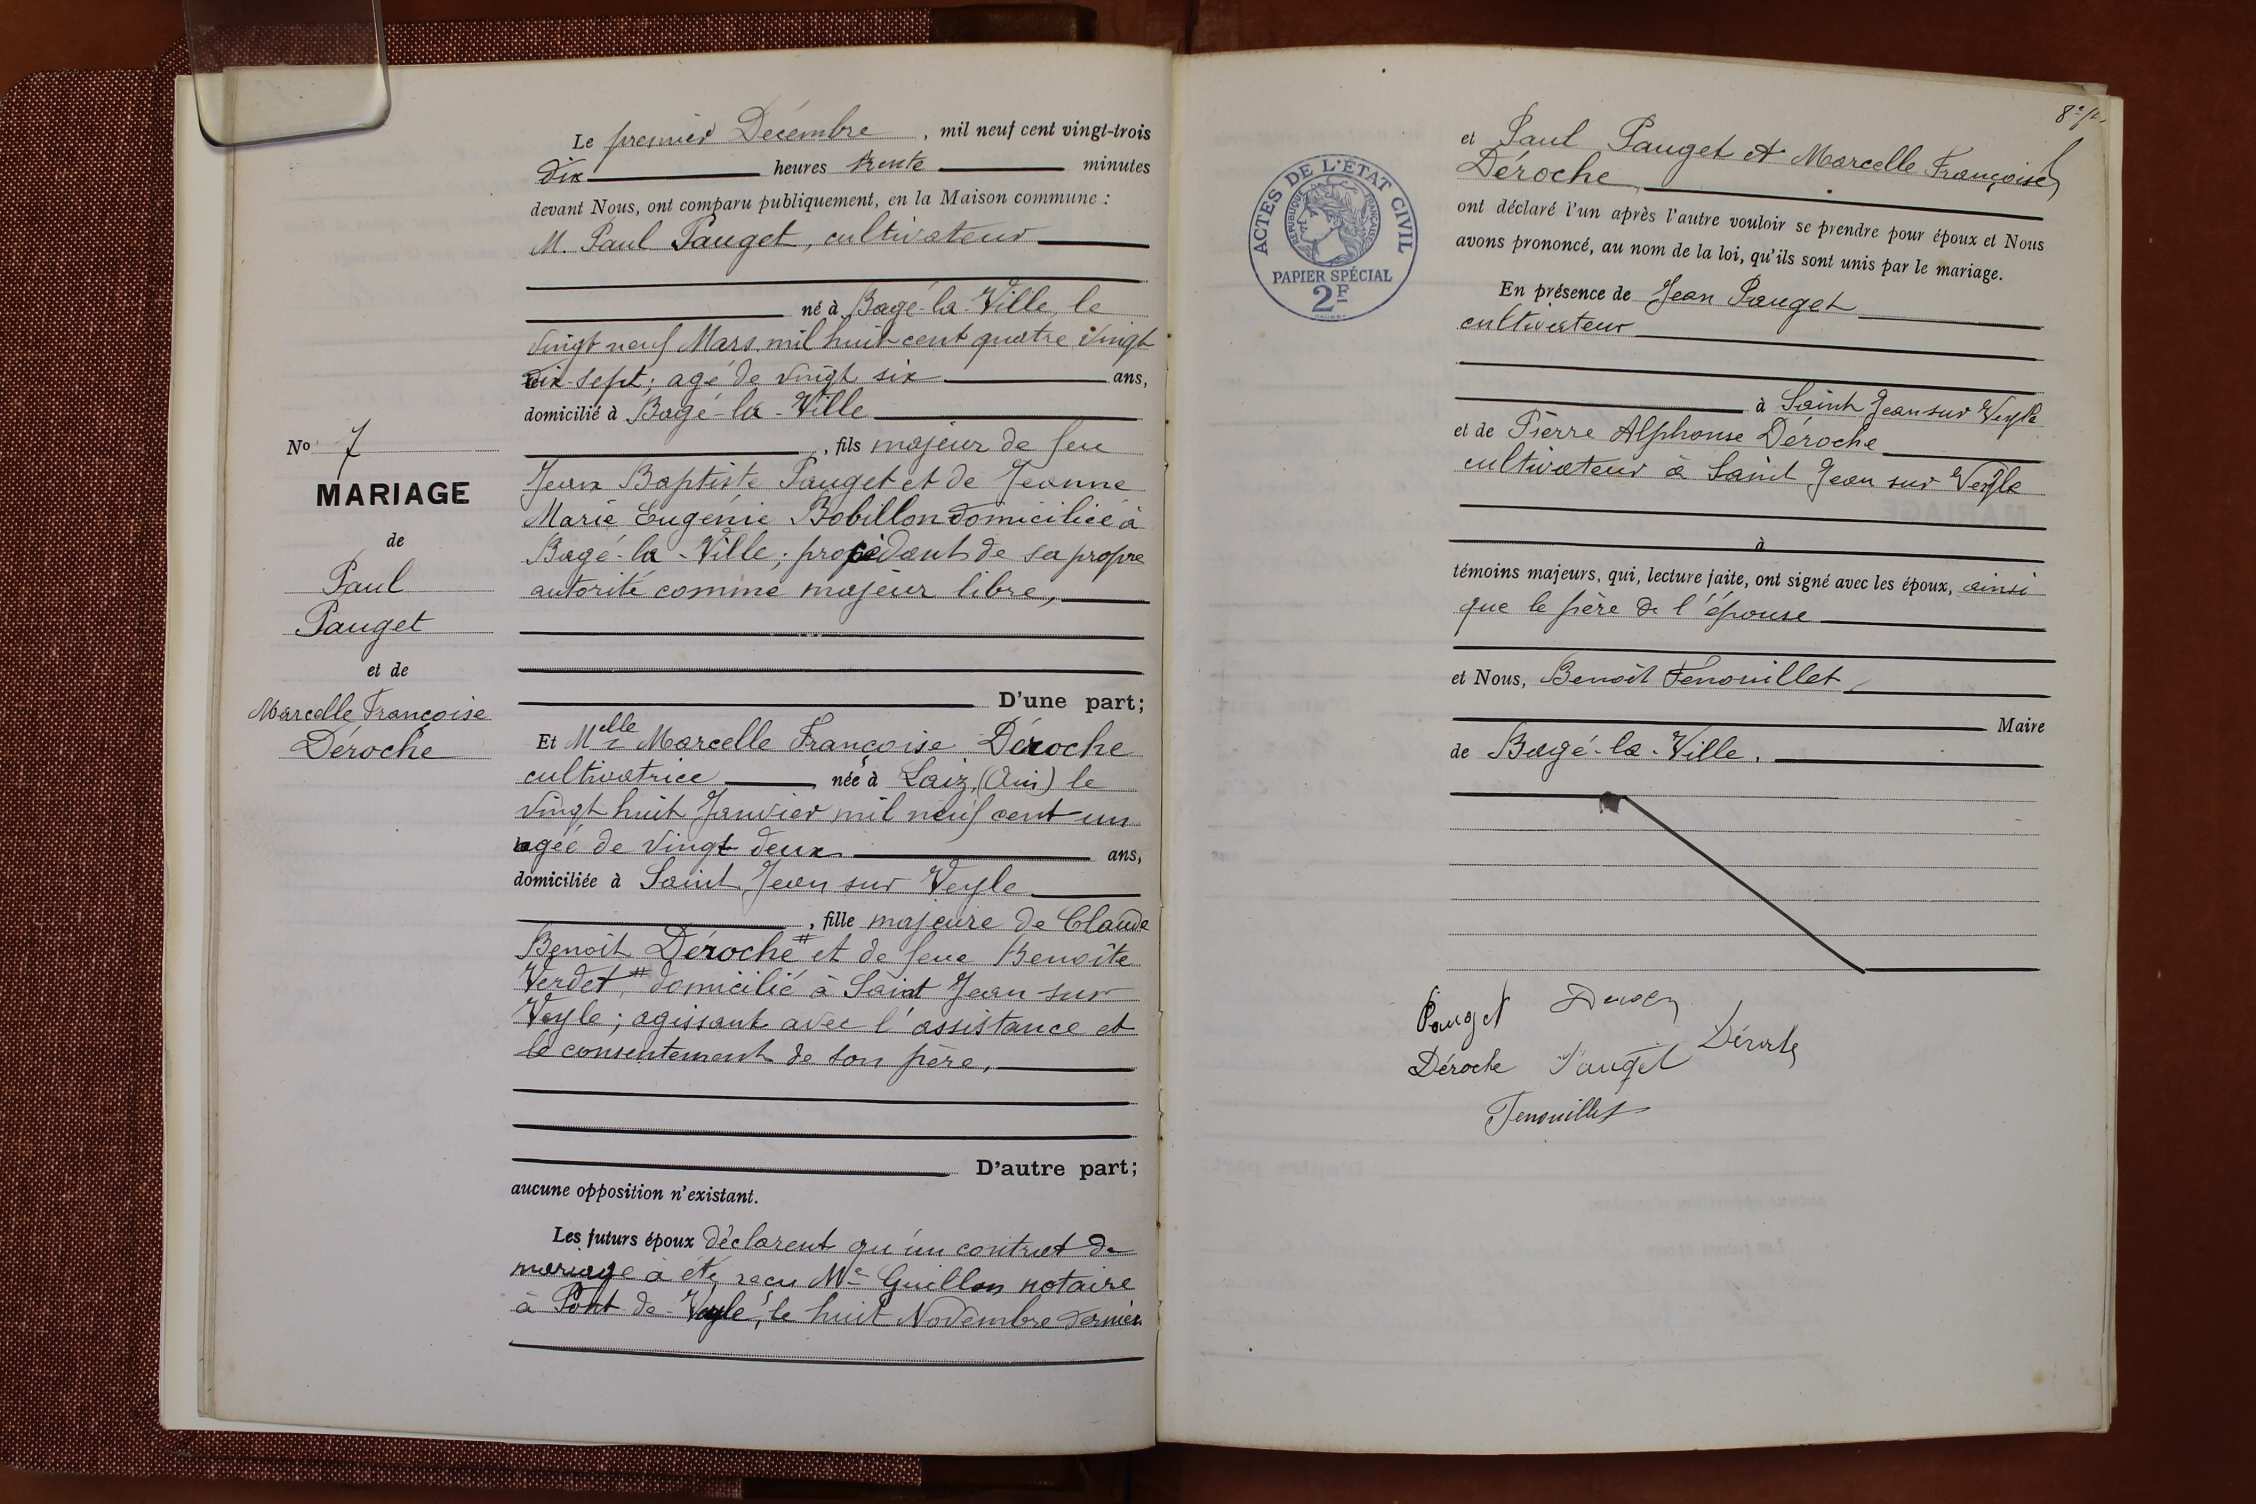 Le premier Décembre, mil neuf cent vingt-trois
dix heures trente minutes
devant Nous, ont comparu publiquement, en la Maison commune :
M. Paul Pauget, cultivateur
né à Bagé-la-Ville, le
vingt neuf Mars mil huit cent quatre vingt
dix-sept; agé de vingt six ans,
domicilié à Bagé-la-Ville
, fils majeur de feu
Jean Baptiste Pauget et de Jeanne
Marie Eugénie Bobillon domiciliée à
Bagé-la-Ville; procédant de sa propre
autorité comme majeur libre,
D'une part;
No 7
MARIAGE
de
Paul
Pauget
et de
Marcelle Françoise
Déroche
Et Melle Marcelle Françoise Déroche
cultivatrice née à Laiz, (Ain) le
vingt huit Janvier mil neuf cent un
agée de vingt deux ans,
domiciliée à Saint Jean sur Veyle
, fille majeure de Claude
Benoît Déroche # et de feue Benoîte
Verdet, # domicilié à Saint Jean sur
Veyle; agissant avec l'assistance et
le consentement de son père,
D'autre part;
aucune opposition n'existant.
Les futurs époux déclarent qu'un contrat de
mariage à été reçu Me Guillon notaire
à Pont de-Veyle, le huit Novembre dernier.
8e
et Paul Pauget et Marcelle Françoise
Déroche
ont déclaré l'un après l'autre vouloir se prendre pour époux et Nous
avons prononcé, au nom de la loi, qu'ils sont unis par le mariage.
En présence de Jean Pauget
cultivateur
à Saint Jean sur Veyle
et de Pierre Alphonse Déroche
cultivateur à Saint Jean sur Veyle
à
témoins majeurs, qui, lecture faite, ont signé avec les époux, ainsi
que le père de l'épouse
et Nous, Benoît Fenouillet
Maire
de Bagé-la-Ville.
ACTES DE L'ÉTAT CIVIL
RÉPUBLIQUE FRANÇAISE
PAPIER SPÉCIAL
2F
Pauget
Déroche Pauget
Fenouillet